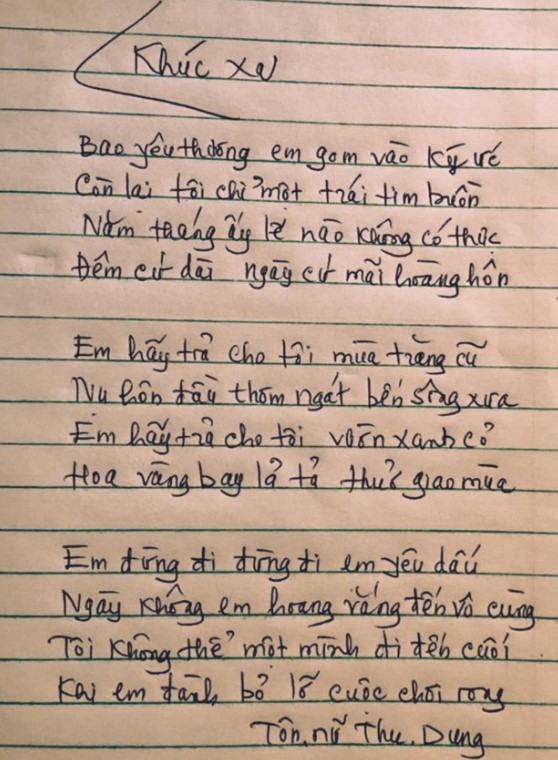 Khúc xa
Bao yêu thương em gom vào ký ức
Còn lại tôi chỉ một trái tim buồn
Năm tháng ấy lẽ nào không có thực
Đêm cứ dài ngày cứ mãi hoàng hôn
Em hãy trả cho tôi mùa trăng cũ
Nụ hôn đầu thơm ngát bến sông xưa
Em hãy trả cho tôi vườn xanh cỏ
Hoa vàng bay lả tả thuở giao mùa
Em đừng đi đừng đi em yêu dấu
Ngày không em hoang vắng đến vô cùng
Tôi không thể một mình đi đến cuối
Khi em đành bỏ lỡ cuộc chơi rong
Tôn nữ Thu Dung